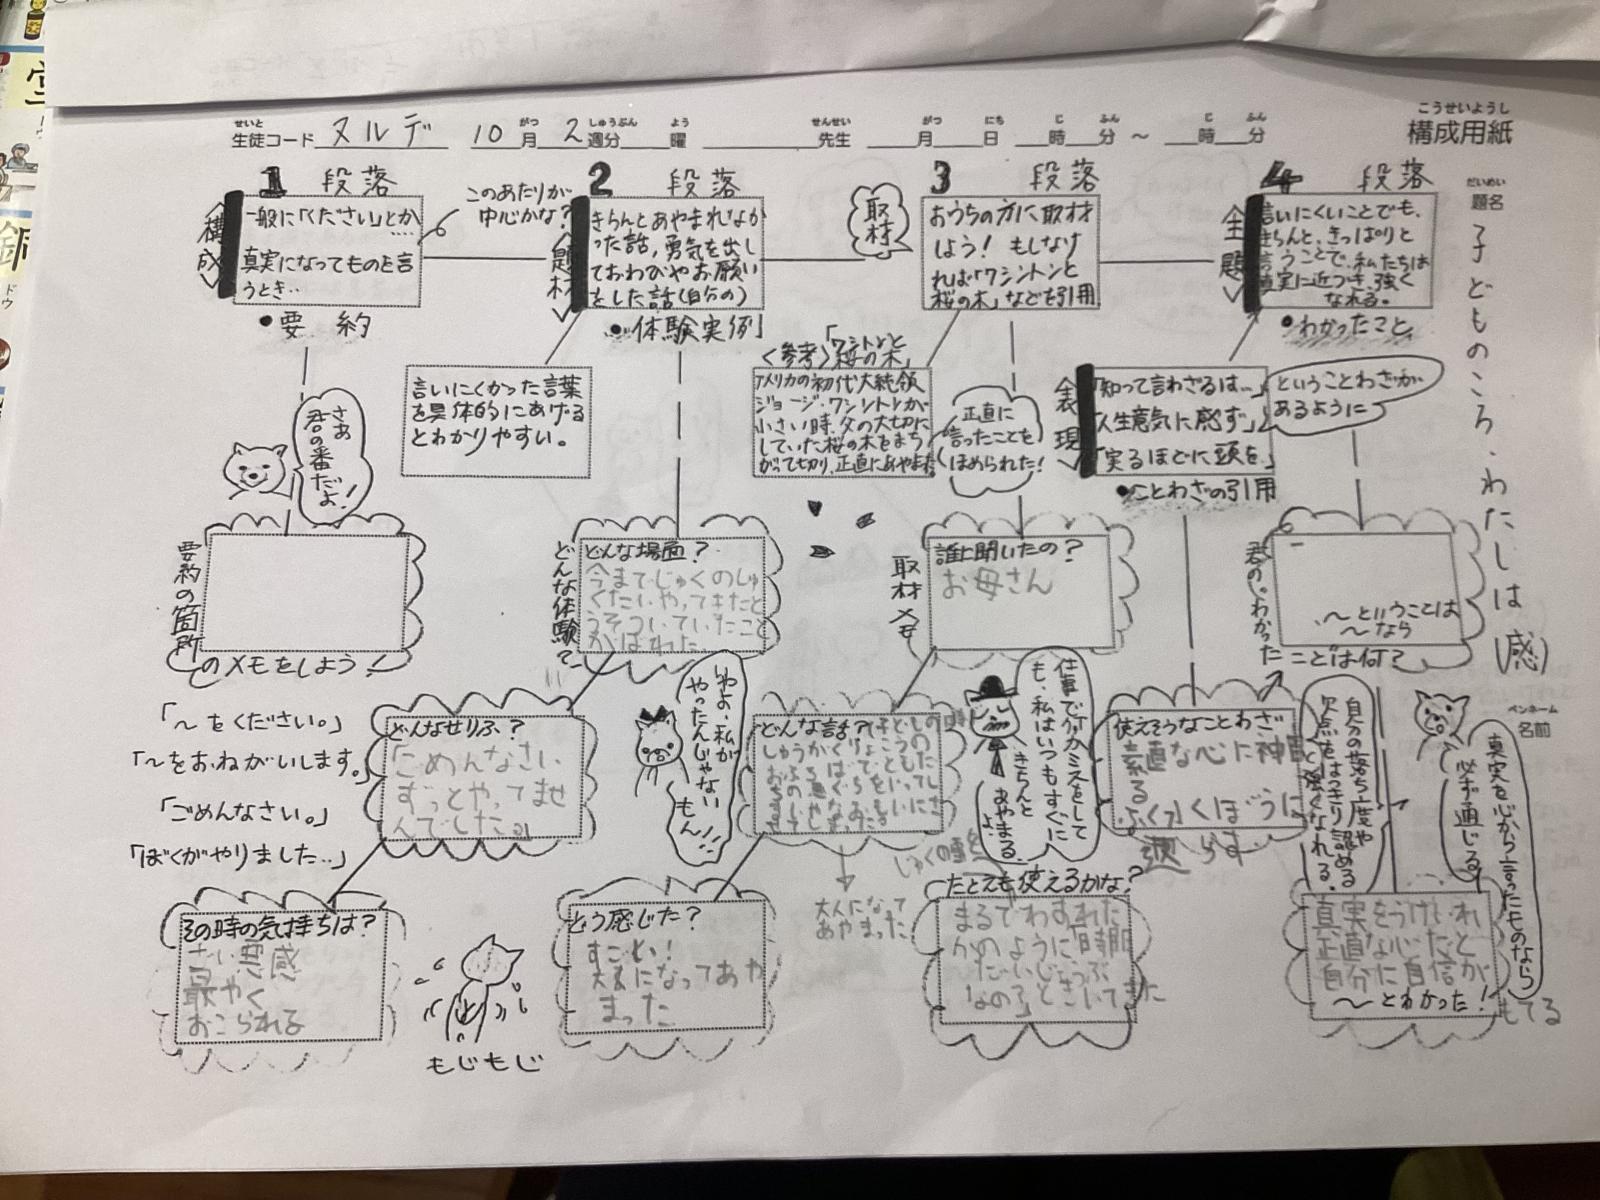 こうせいようし
構成用紙
せいと がつ しゅうぶん よう せんせい がつ にち じ ふん じ ふん
生徒コード ヌルデ 10月 2週分 曜 先生 月 日 時 分 ～ 時 分
だいめい
題名
子どものころ、わたしは(感)
ペンネーム
名前
1 段落
＜構成＞
一般に「ください」とか…
真実になってものを言
うとき‥
●要約
このあたりが
中心かな？
さあ
君の番だよ！
要約の箇所
のメモをしよう！
「～をください。」
「～をおねがいします。」
「ごめんなさい。」
「ぼくがやりました‥」
2 段落
＜題材＞
きちんとあやまれなか
った話，勇気を出し
ておわびやお願い
をした話(自分の)
●体験実例
言いにくかった言葉
を具体的にあげる
とわかりやすい。
どんな体験
どんな場面？
今までじゅくのしゅ
くだいやってきたと
うそついていたこと
がばれた
どんなせりふ？
「ごめんなさい
ずっとやってませ
んでした。」
いやよ、私が
やったんじゃない
もん！！
その時の気持ちは？
悪感
最やく
おこられる
もじもじ
3 段落
取材
おうちの方に取材
しよう！もしなけ
れば「ワシントンと
桜の木」などを引用
＜参考＞「ワシントンと
桜の木」
アメリカの初代大統領
ジョージ・ワシントンが
小さい時、父の大切に
していた桜の木をまち
がって切り、正直にあやまた
正直に
言ったことを
ほめられた！
取材メモ
誰に聞いたの？
お母さん
どんな話？
大人になって
あやまった
仕事で何かミスをして
も、私はいつもすぐに
きちんと
あやまる
よ。
どう感じた？
すごい！
大人になってあや
まった
たとえも使えるかな？
まるでわすれた
かのように「時間
だいじょうぶ
なの？」ときいてきた
4 段落
＜主題＞
言いにくいことでも、
きちんと、きっぱりと
言うことで、私たちは
真実に近づき、強く
なれる。
●わかったこと
＜表現＞
「知って言わざるは…」
「人生意気に感ず」
「実るほどに頭を」
ということわざが
あるように
●ことわざの引用
君のわかった
ことは何？
～ということは
～なら
使えそうなことわざ
素直な心に神宿
る
自分の落ち度や
欠点をはっきり認める
と強くなれる。
真実を心から言ったものなら
必ず通じる！
真実をうけいれ
正直な心だと
自分に自信が
もてる
～とわかった！